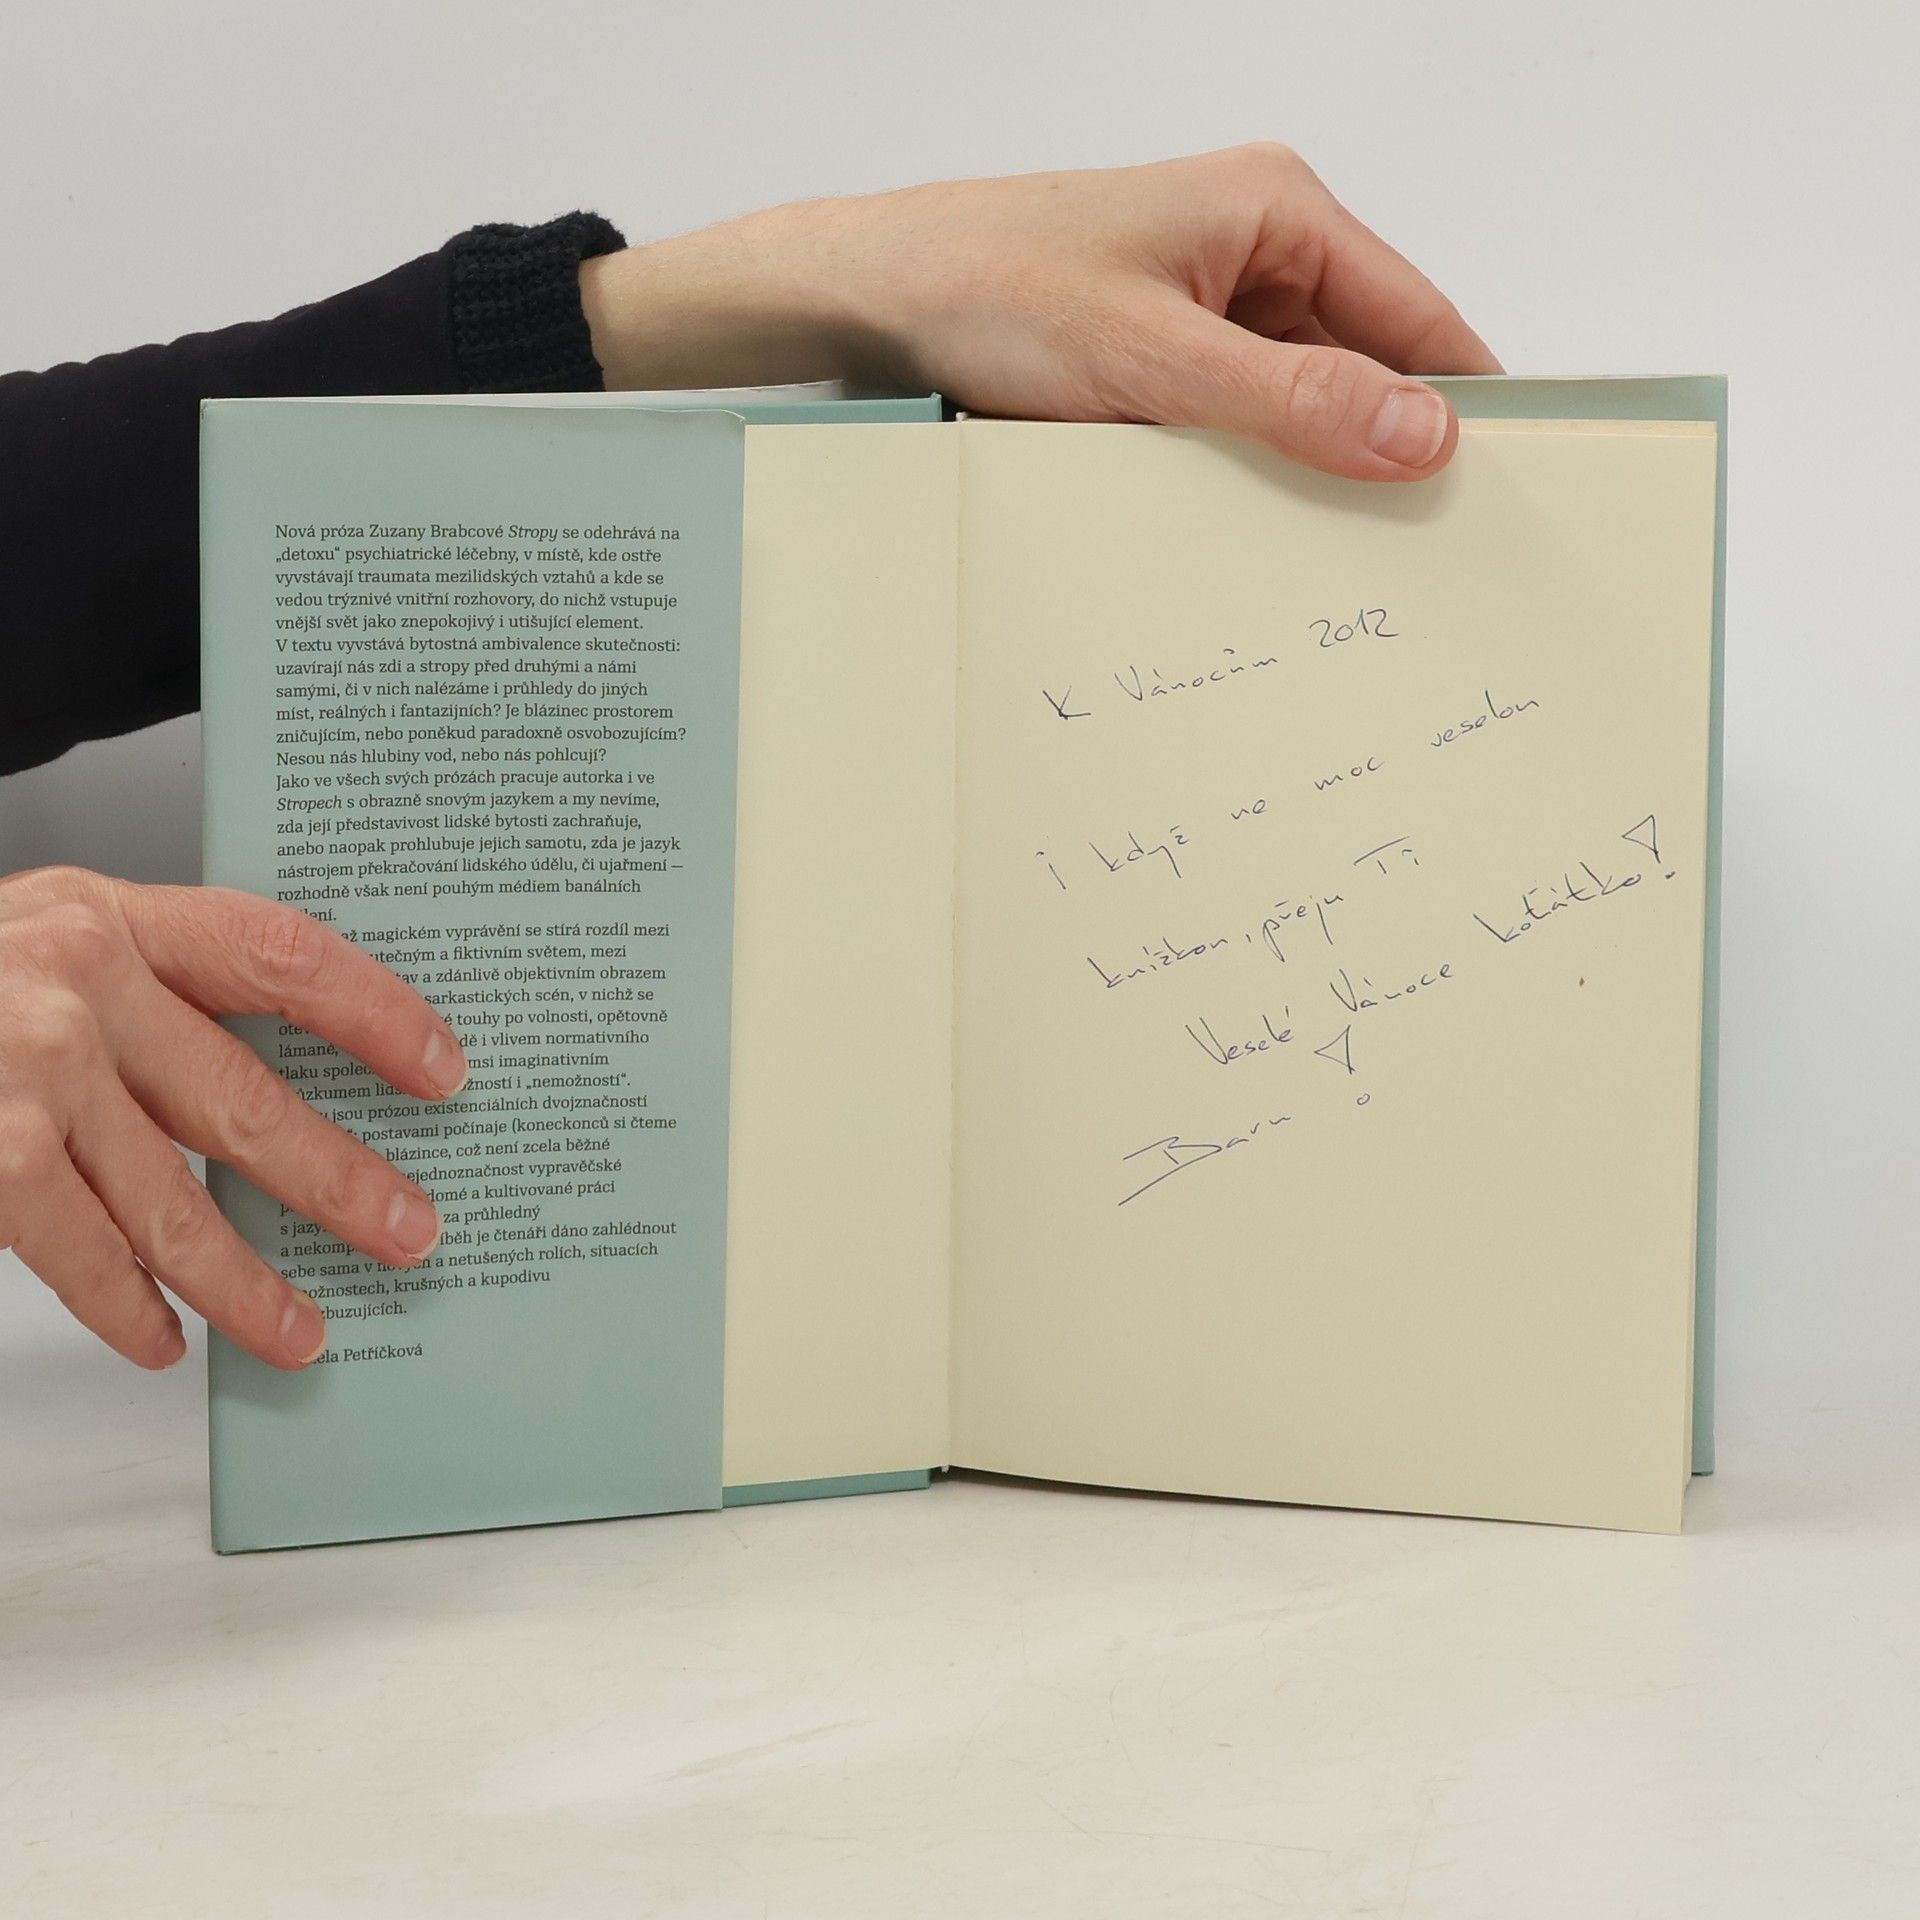 Nová próza Zuzany Brabcové Stropy se odehrává na
„detoxu“ psychiatrické léčebny, v místě, kde ostře
vyvstávají traumata mezilidských vztahů a kde se
vedou trýznivé vnitřní rozhovory, do nichž vstupuje
vnější svět jako znepokojivý i utišující element.
V textu vyvstává bytostná ambivalence skutečnosti:
uzavírají nás zdi a stropy před druhými a námi
samými, či v nich nalézáme i průhledy do jiných
míst, reálných i fantazijních? Je blázinec prostorem
zničujícím, nebo poněkud paradoxně osvobozujícím?
Nesou nás hlubiny vod, nebo nás pohlcují?
Jako ve všech svých prózách pracuje autorka i ve
Stropech s obrazně snovým jazykem a my nevíme,
zda její představivost lidské bytosti zachraňuje,
anebo naopak prohlubuje jejich samotu, zda je jazyk
nástrojem překračování lidského údělu, či ujařmení —
rozhodně však není pouhým médiem banálních
až magickém vyprávění se stírá rozdíl mezi
a fiktivním světem, mezi
a zdánlivě objektivním obrazem
sarkastických scén, v nichž se
touhy po volnosti, opětovně
lámané, i vlivem normativního
tlaku imaginativním
i „nemožností“.
jsou prózou existenciálních dvojznačností
postavami počínaje (koneckonců si čteme
blázince, což není zcela běžné
vypravěčské
a kultivované práci
za průhledný
je čtenáři dáno zahlédnout
sebe sama v a netušených rolích, situacích
krušných a kupodivu
Petříčková
K Vánocům 2012
i když ne moc veselou
knížkou, přeju Ti
Veselé Vánoce koťátko!
! Baru